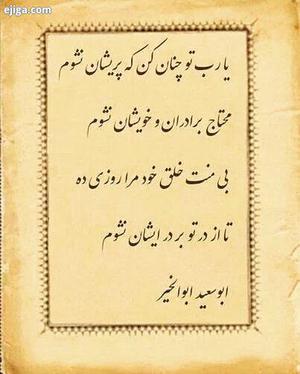 ejiga.com
یا رب تو چنان کن که پریشان نشوم
محتاج برادران و خویشان نشوم
بی منت خلق خود مرا روزی ده
تا از در تو بر در ایشان نشوم
ابوسعید ابوالخیر